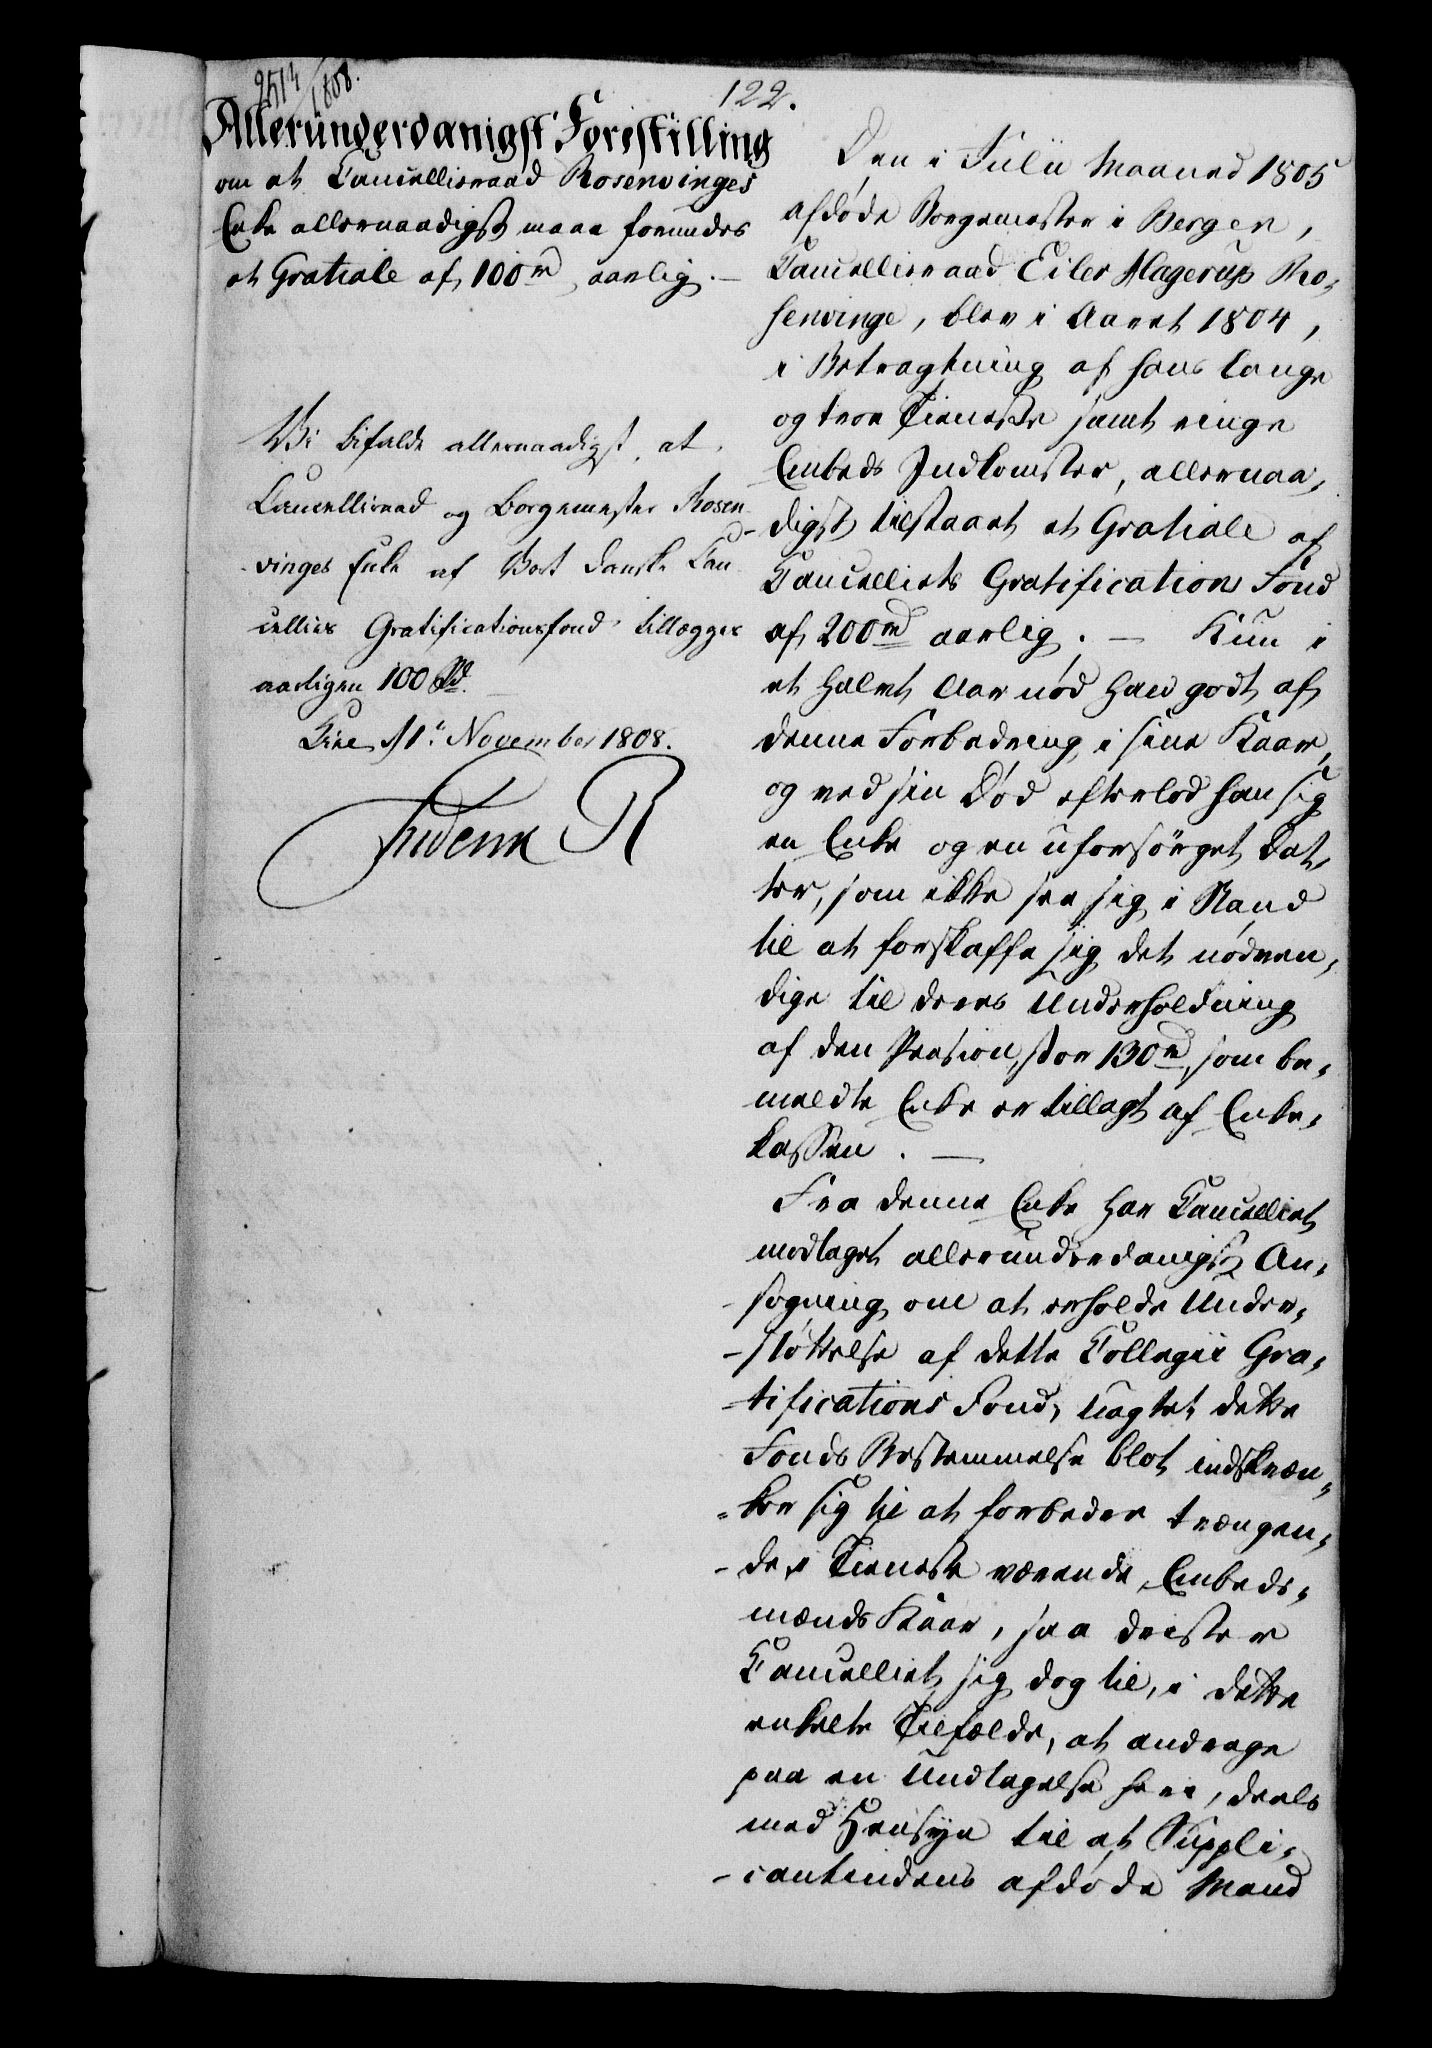 2514/1808.
122.
Allerunderdanigst Forestilling
om at Cancellieraad Rosenvinges
Enke allernaadigst maae forundes
et Gratiale af 100rd aarlig. —
Vi bifalde allernaadigst, at
Cancellieraad og Borgemester Rosen-
vinges Enke af Vort danske Can-
cellies Gratificationsfond tillægges
aarligen 100 Rd. —
1t November 1808.
Friderik R
Den i Julii Maaned 1805
afdøde Borgemester i Bergen,
Cancellieraad Eiler Hagerup Ro-
senvinge, blev i Aaret 1804,
i Betragtning af hans lange
og troe Tieneste samt ringe
Embeds Indkomster, allernaa-
digst tilstaaet et Gratiale af
Cancelliets Gratifications Fond
af 200rd aarlig. — Kun i
et halvt Aar nød han godt af
denne Forbedring i sine Kaar,
og ved sin Død efterlod han sig
en Enke og en uforsørget Dat-
ter, som ikke see sig i Stand
til at forskaffe sig det nødven-
dige til deres Underholdning
af den Pension, stor 130rd, som be-
meldte Enke er tillagt af Enke-
kassen. —
Fra denne Enke har Cancelliet
modtaget allerunderdanigst An-
søgning om at erholde Under-
støttelse af dette Collegii Gra-
tifications Fond, Uagtet dette
Fonds Bestemmelse blot indskræn-
ker sig til at forbedre trængen-
de, i Tieneste værende, Embeds-
mænds Kaar, saa drister
Cancelliet sig dog til, i dette
enkelte Tilfælde, at andrage
paa en Undtagelse heri, deels
med Hensyn til at Suppli-
cantindens afdøde Mand